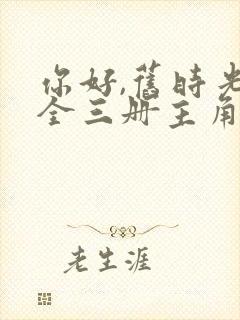 你好,舊時光
全三册主角
老生涯